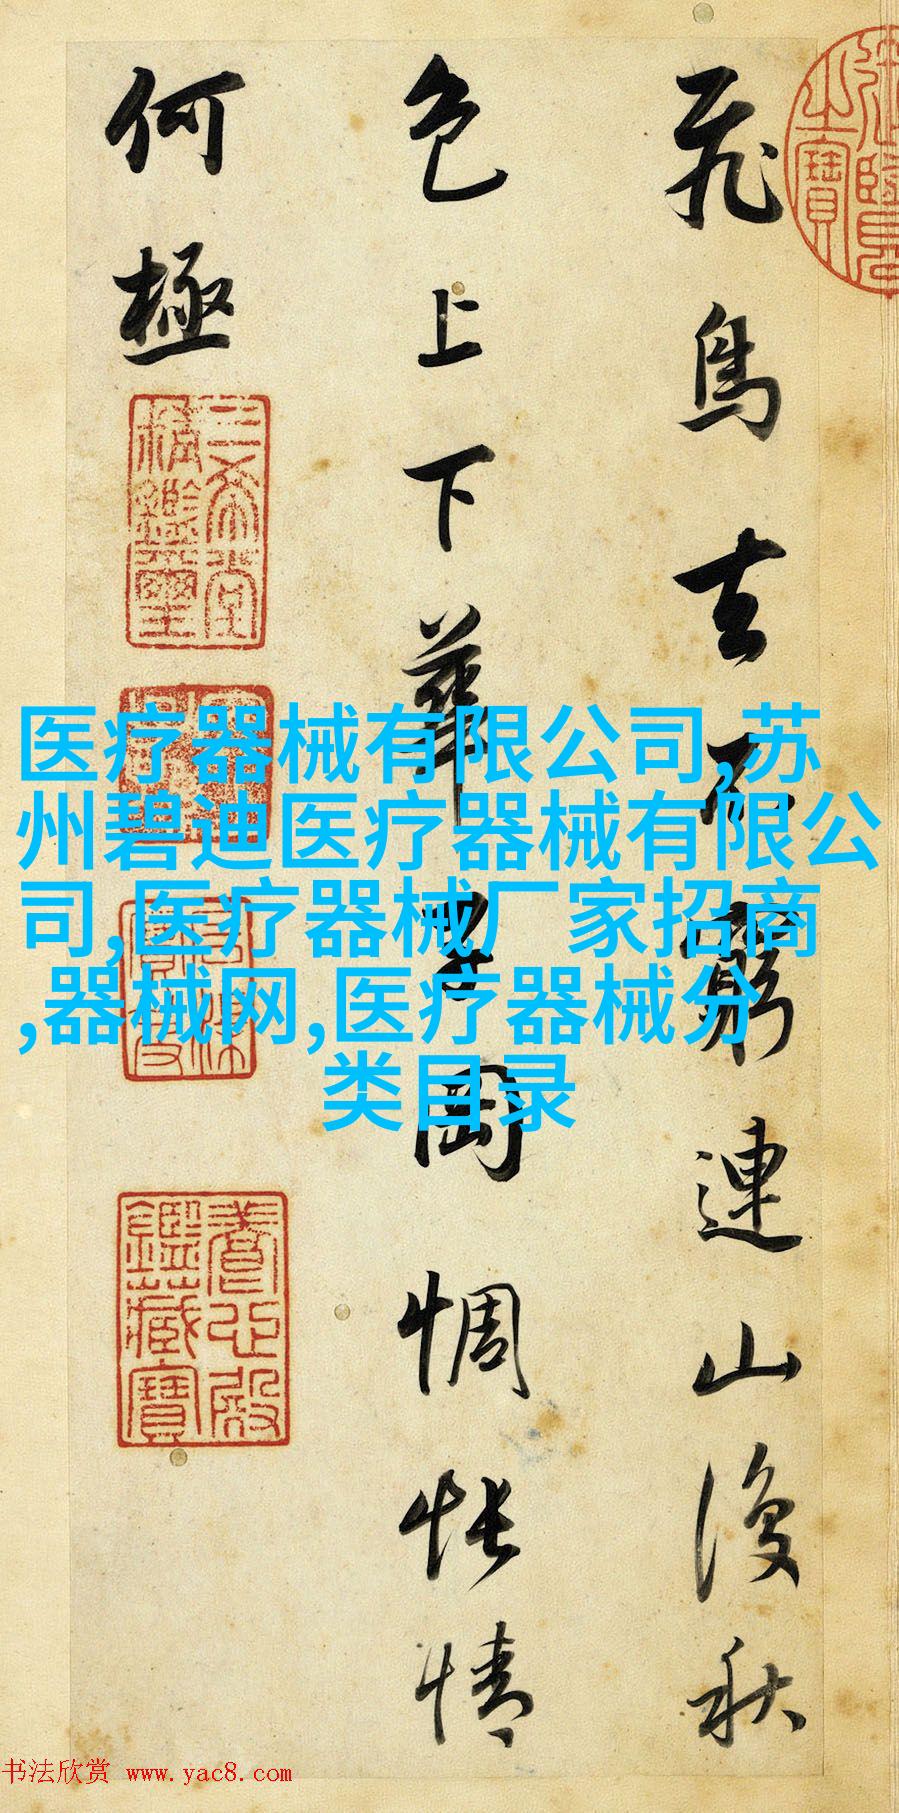 飛鳥去不窮連山復秋
色上下華子岡惆悵情
何極
三希堂
精鑑璽
養心殿
鑑藏寶
医疗器械有限公司,苏
州碧迪医疗器械有限公
司,医疗器械厂家招商
,器械网,医疗器械分
类目录
书法欣赏 www.yac8.com